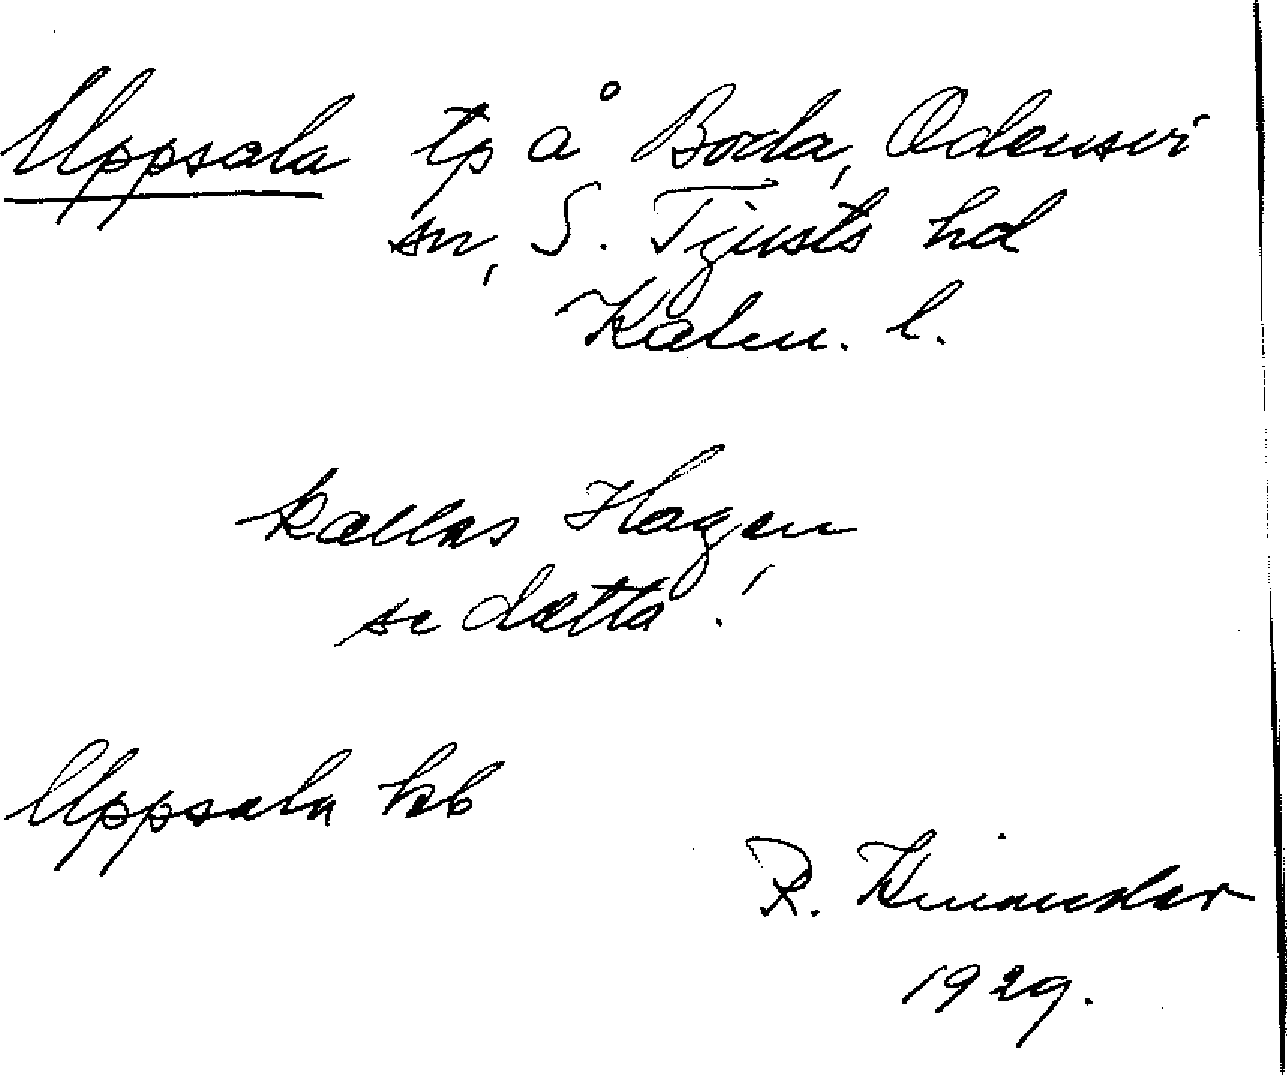 Uppsala tp å Boda, Odensvi
sn, S. Tjusts hd
Kalm. l.
kallas Hagen,
se detta!
Uppsala kb
R. Kinander
1929.